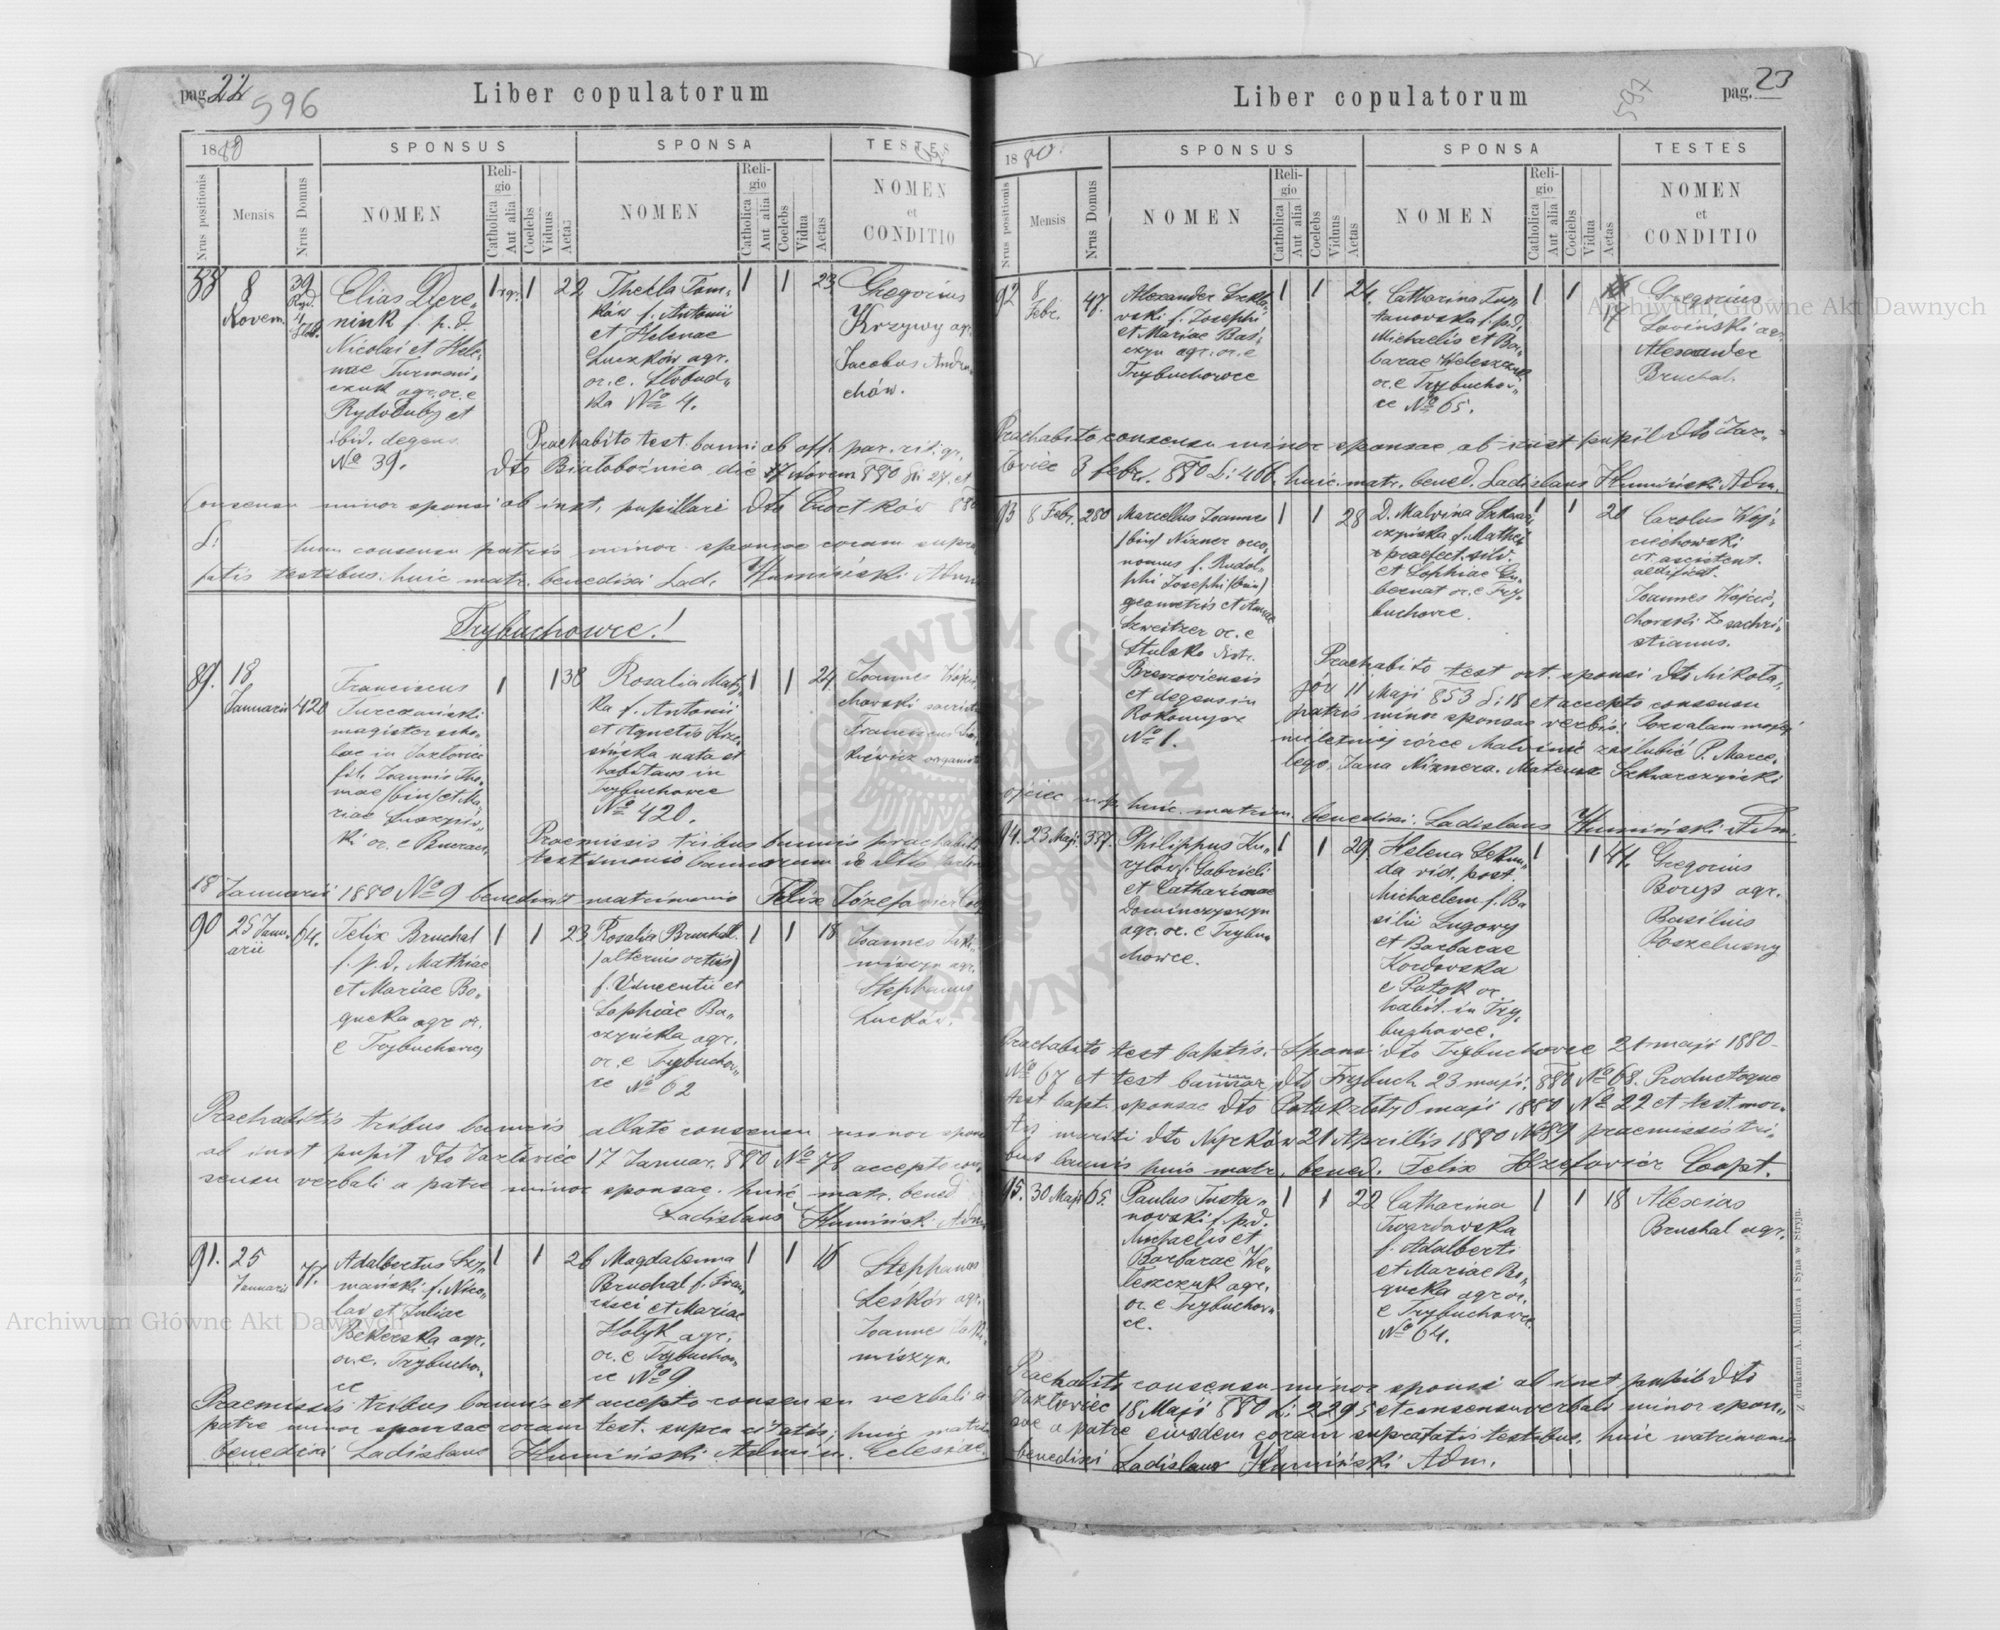 pag. 22
596
Liber copulatorum
1880
SPONSUS
SPONSA
TESTES
Nrus positionis
Mensis
Nrus Domus
NOMEN
Religio
Catholica
Aut alia
Coelebs
Viduus
Aetas
NOMEN
Religio
Catholica
Aut alia
Coelebs
Vidua
Aetas
NOMEN
et
CONDITIO
88
8
Novem.
39
Ryd.
4
Elias Dere-
nink f. p. d.
Nicolai et Hele-
nae
agr. or. e
Rydoduby et
ibid. degens
No 39.
1
1
22
Thecla Tom-
ków f. Antonii
et Helenae
Luczków agr.
or. e. Slobud-
ka No 4.
1
1
23
Gregorius
Krzywy agr.
Jacobus Andru-
chów.
Praehabito test. banni ab off. par. rit. gr.
dto Białobożnica die 17 Novem 880 et
Consensu minor sponsi ab inst. pupillari dto Czortków 880
L: tum consensu patris minor. sponsae coram supra
fatis testibus huic matr. benedixi Lad. Humiński Admin
Trybuchowce!
89.
18
Januarii
420
Franciscus
Jurczański
magister scho-
lae in Jazłowiec
fil. Joannis Tho-
mae /bin/ et Ma-
riae
ki or. e
1
1
38
Rosalia Maty-
ka f. Antonii
et Agnetis Krze-
sińska nata et
habitans in
Trybuchowce
No 420.
1
1
24
Joannes Wojcie-
chowski sacrist
Franciscus
kiewicz organista
Praemissis tribus bannis praehabito
testimonio bannorum de dto
18 Januarii 1880 No 9 benedixit matrimonio Felix Józefowicz Coop
90
25 Janu-
arii
64.
Felix Bruchal
f. p. d. Mathiae
et Mariae Bo-
gucka agr or.
e Trybuchowce
1
1
23
Rosalia Bruchal
/alterius ortus/
f. Vincentii et
Sophiae Ba-
czyńska agr.
or. e Trybucho-
ce No 62
1
1
18
Joannes Jaki-
miszyn agr.
Stephanus
Luczków.
Praehabitis tribus bannis allato consensu minor sponsi
ab inst pupil dto Jazłowiec 17 Januar. 880 No 78 accepto con-
sensu verbali a patre minor sponsae huic matr. bened
Ladislaus Humiński Adm
91.
25
Januarii
77.
Adalbertus Szy-
mański f. Nico-
lai et Juliae
Bekerska agr.
or. e. Trybucho-
ce
1
1
26
Magdalenna
Bruchal f. Fran-
cisci et Mariae
Hołyk agr.
or. e Trybucho-
ce No 9
1
1
16
Stephanus
Leśków agr.
Joannes Jaki-
miszyn.
Praemissis tribus bannis et accepto consensu verbali a
patre minor sponsae coram test. supra citatis, huic matrim
benedixi Ladislaus Humiński Admin. Ecclesiae
Liber copulatorum
597
pag. 23
1880.
SPONSUS
SPONSA
TESTES
Nrus positionis
Mensis
Nrus Domus
NOMEN
Religio
Catholica
Aut alia
Coelebs
Viduus
Aetas
NOMEN
Religio
Catholica
Aut alia
Coelebs
Vidua
Aetas
NOMEN
et
CONDITIO
92
8
Febr.
47.
Alexander Szkla-
rski f. Josephi
et Mariae Bas-
czyn agr. or. e
Trybuchowce
1
1
24.
Catharina Tus-
tanowska f. p. d.
Michaelis et Bar-
barae Weleszczuk
or. e Trybucho-
ce No 65.
1
1
Gregorius
Łoviński agr.
Alexander
Bruchal.
Praehabito consensu minor sponsae ab inst pupil dto Jaz-
łowiec 3 febr. 880 L: 406, huic matr. bened. Ladislaus Humiński Adm.
93
8 Febr.
280
Marcellus Joannes
/bin/ Nixner oeco-
nomus f. Rudol-
phi Josephi /bin/
geometris et Annae
Szweitzer or. e
Stulsko distr.
Brezoviensis
et degens in
Rokomysz
No 1.
1
1
28
D. Malvina Szkwar-
czyńska f. Mathei
praefect. silv.
et Sophiae Gu-
bernat or. e Try-
buchowce.
1
1
20
Carolus Woj-
ciechowski
assistent.
aedificat.
Joannes Wojcie-
chowski sachri-
stianus.
Praehabito test ort. sponsi dto Mikoła-
jów 11 Maji 853 L: 18 et accepto consensu
patris minor sponsae verbis: Pozwalam mojej
nieletniej córce Malwinie zaślubić P. Marce-
lego Jana Nixnera. Mateusz Szkwarczyński
ojciec mp. huic matrim. benedixi. Ladislaus Humiński Adm.
94.
23 Maji
337.
Philippus Ku-
ryłów f. Gabrieli
et Catharinae
Dominczyszyn
agr. or. e Trybu-
chowce.
1
1
29
Helena Sekun-
da vid. post
Michaelem f. Ba
silii Ługowy
et Barbarae
Kordowska
e Potok or
habit. in Try-
buchowce.
1
1
41.
Gregorius
Borys agr.
Basilius
Poszelużny
Praehabito test baptis. Sponsi dto Trybuchowce 21 maji 1880
No 67 et test bannor dto Trybuch 23 maji 880 No 68. Productoque
test bapt. sponsae dto Potok złoty 6 maji 1880 No 22 et test mor-
tis mariti dto Nyrków 21 Aprillis 1880 No 89 praemissis tri-
bus bannis huic matr. bened. Felix Józefowicz Coopt.
95.
30 Maji
65.
Paulus Tusta-
nowski f. p. d.
Michaelis et
Barbarae We-
leszczuk agr.
or. e Trybuchow-
ce.
1
1
22
Catharina
Twardowska
f. Adalberti
et Mariae Bo-
gucka agr or.
e Trybuchowce
No 64.
1
1
18
Alexius
Bruchal agr.
Praehabito consensu minor sponsi ab inst pupil dto
Jazłowiec 18 Maji 880 L: 2295 et consensu verbali minor spon-
sae a patre eiusdem coram suprafatis testibus. huic matrimonio
benedixi Ladislaus Humiński Adm.
Z drukarni A. Müllera i Syna w Stryju.
Archiwum Główne Akt Dawnych
Archiwum Główne Akt Dawnych
ARCHIWUM GŁÓWNE AKT DAWNYCH